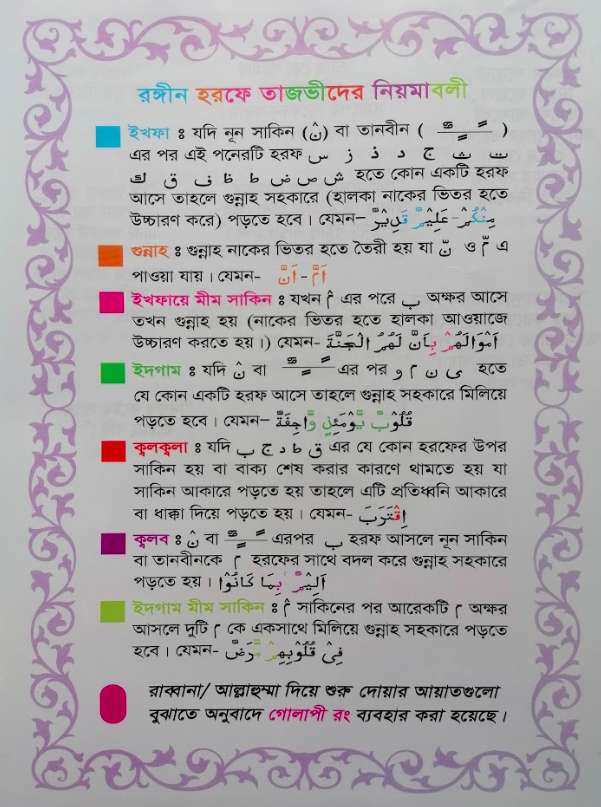 রঙ্গীন হরফে তাজভীদের নিয়মাবলী
ইখফা ঃ যদি নূন সাকিন (نْ) বা তানবীন ( ـًـ ـٍـ ـٌـ )
এর পর এই পনেরটি হরফ ت ث ج د ذ ز س
ش ص ض ط ظ ف ق ك হতে কোন একটি হরফ
আসে তাহলে গুন্নাহ সহকারে (হালকা নাকের ভিতর হতে
উচ্চারণ করে) পড়তে হবে। যেমন– مِنْكُمْ - عَلِيْمٌ قَدِيْرٌ
গুন্নাহ ঃ গুন্নাহ নাকের ভিতর হতে তৈরী হয় যা نّ ও مّ এ
পাওয়া যায়। যেমন- اَنَّ - اَمَّ
ইখফায়ে মীম সাকিন ঃ যখন مْ এর পরে ب অক্ষর আসে
তখন গুন্নাহ হয় (নাকের ভিতর হতে হালকা আওয়াজে
উচ্চারণ করতে হয়।) যেমন- اَمْوَالَهُمْ بِاَنَّ لَهُمُ الْجَنَّةَ
ইদগাম ঃ যদি نْ বা ـًـ ـٍـ ـٌـ এর পর ى ن م و হতে
যে কোন একটি হরফ আসে তাহলে গুন্নাহ সহকারে মিলিয়ে
পড়তে হবে। যেমন– قُلُوْبٌ يَّوْمَئِذٍ وَّاجِفَةٌ
ক্বলক্বলা ঃ যদি ق ط د ج ب এর যে কোন হরফের উপর
সাকিন হয় বা বাক্য শেষ করার কারণে থামতে হয় যা
সাকিন আকারে পড়তে হয় তাহলে এটি প্রতিধ্বনি আকারে
বা ধাক্কা দিয়ে পড়তে হয়। যেমন– اِقْتَرَبَ
ক্বলব ঃ نْ বা ـًـ ـٍـ ـٌـ এরপর ب হরফ আসলে নূন সাকিন
বা তানবীনকে م হরফের সাথে বদল করে গুন্নাহ সহকারে
পড়তে হয়। اَلِيْمٌ بِمَا كَانُوْا
ইদগাম মীম সাকিন ঃ مْ সাকিনের পর আরেকটি م অক্ষর
আসলে দুটি م কে একসাথে মিলিয়ে গুন্নাহ সহকারে পড়তে
হবে। যেমন– فِىْ قُلُوْبِهِمْ مَّرَضٌ
রাব্বানা/ আল্লাহুম্মা দিয়ে শুরু দোয়ার আয়াতগুলো
বুঝাতে অনুবাদে গোলাপী রং ব্যবহার করা হয়েছে।